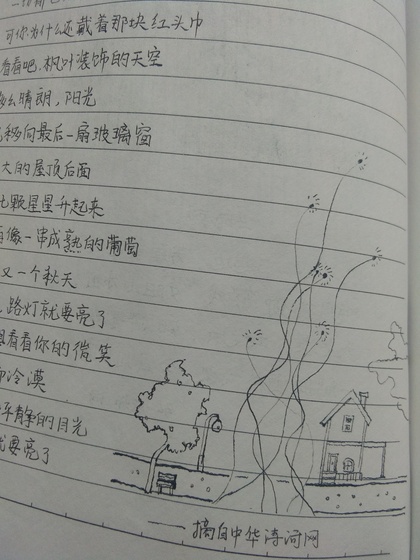 可你为什么还戴着那块红头巾
看看吧，枫叶装饰的天空
多么晴朗，阳光
移向最后一扇玻璃窗
大的屋顶后面
颗星星升起来
像一串成熟的葡萄
又一个秋天
路灯就要亮了
想看看你的微笑
却冷漠
平静的目光
就要亮了
——摘自中华诗词网